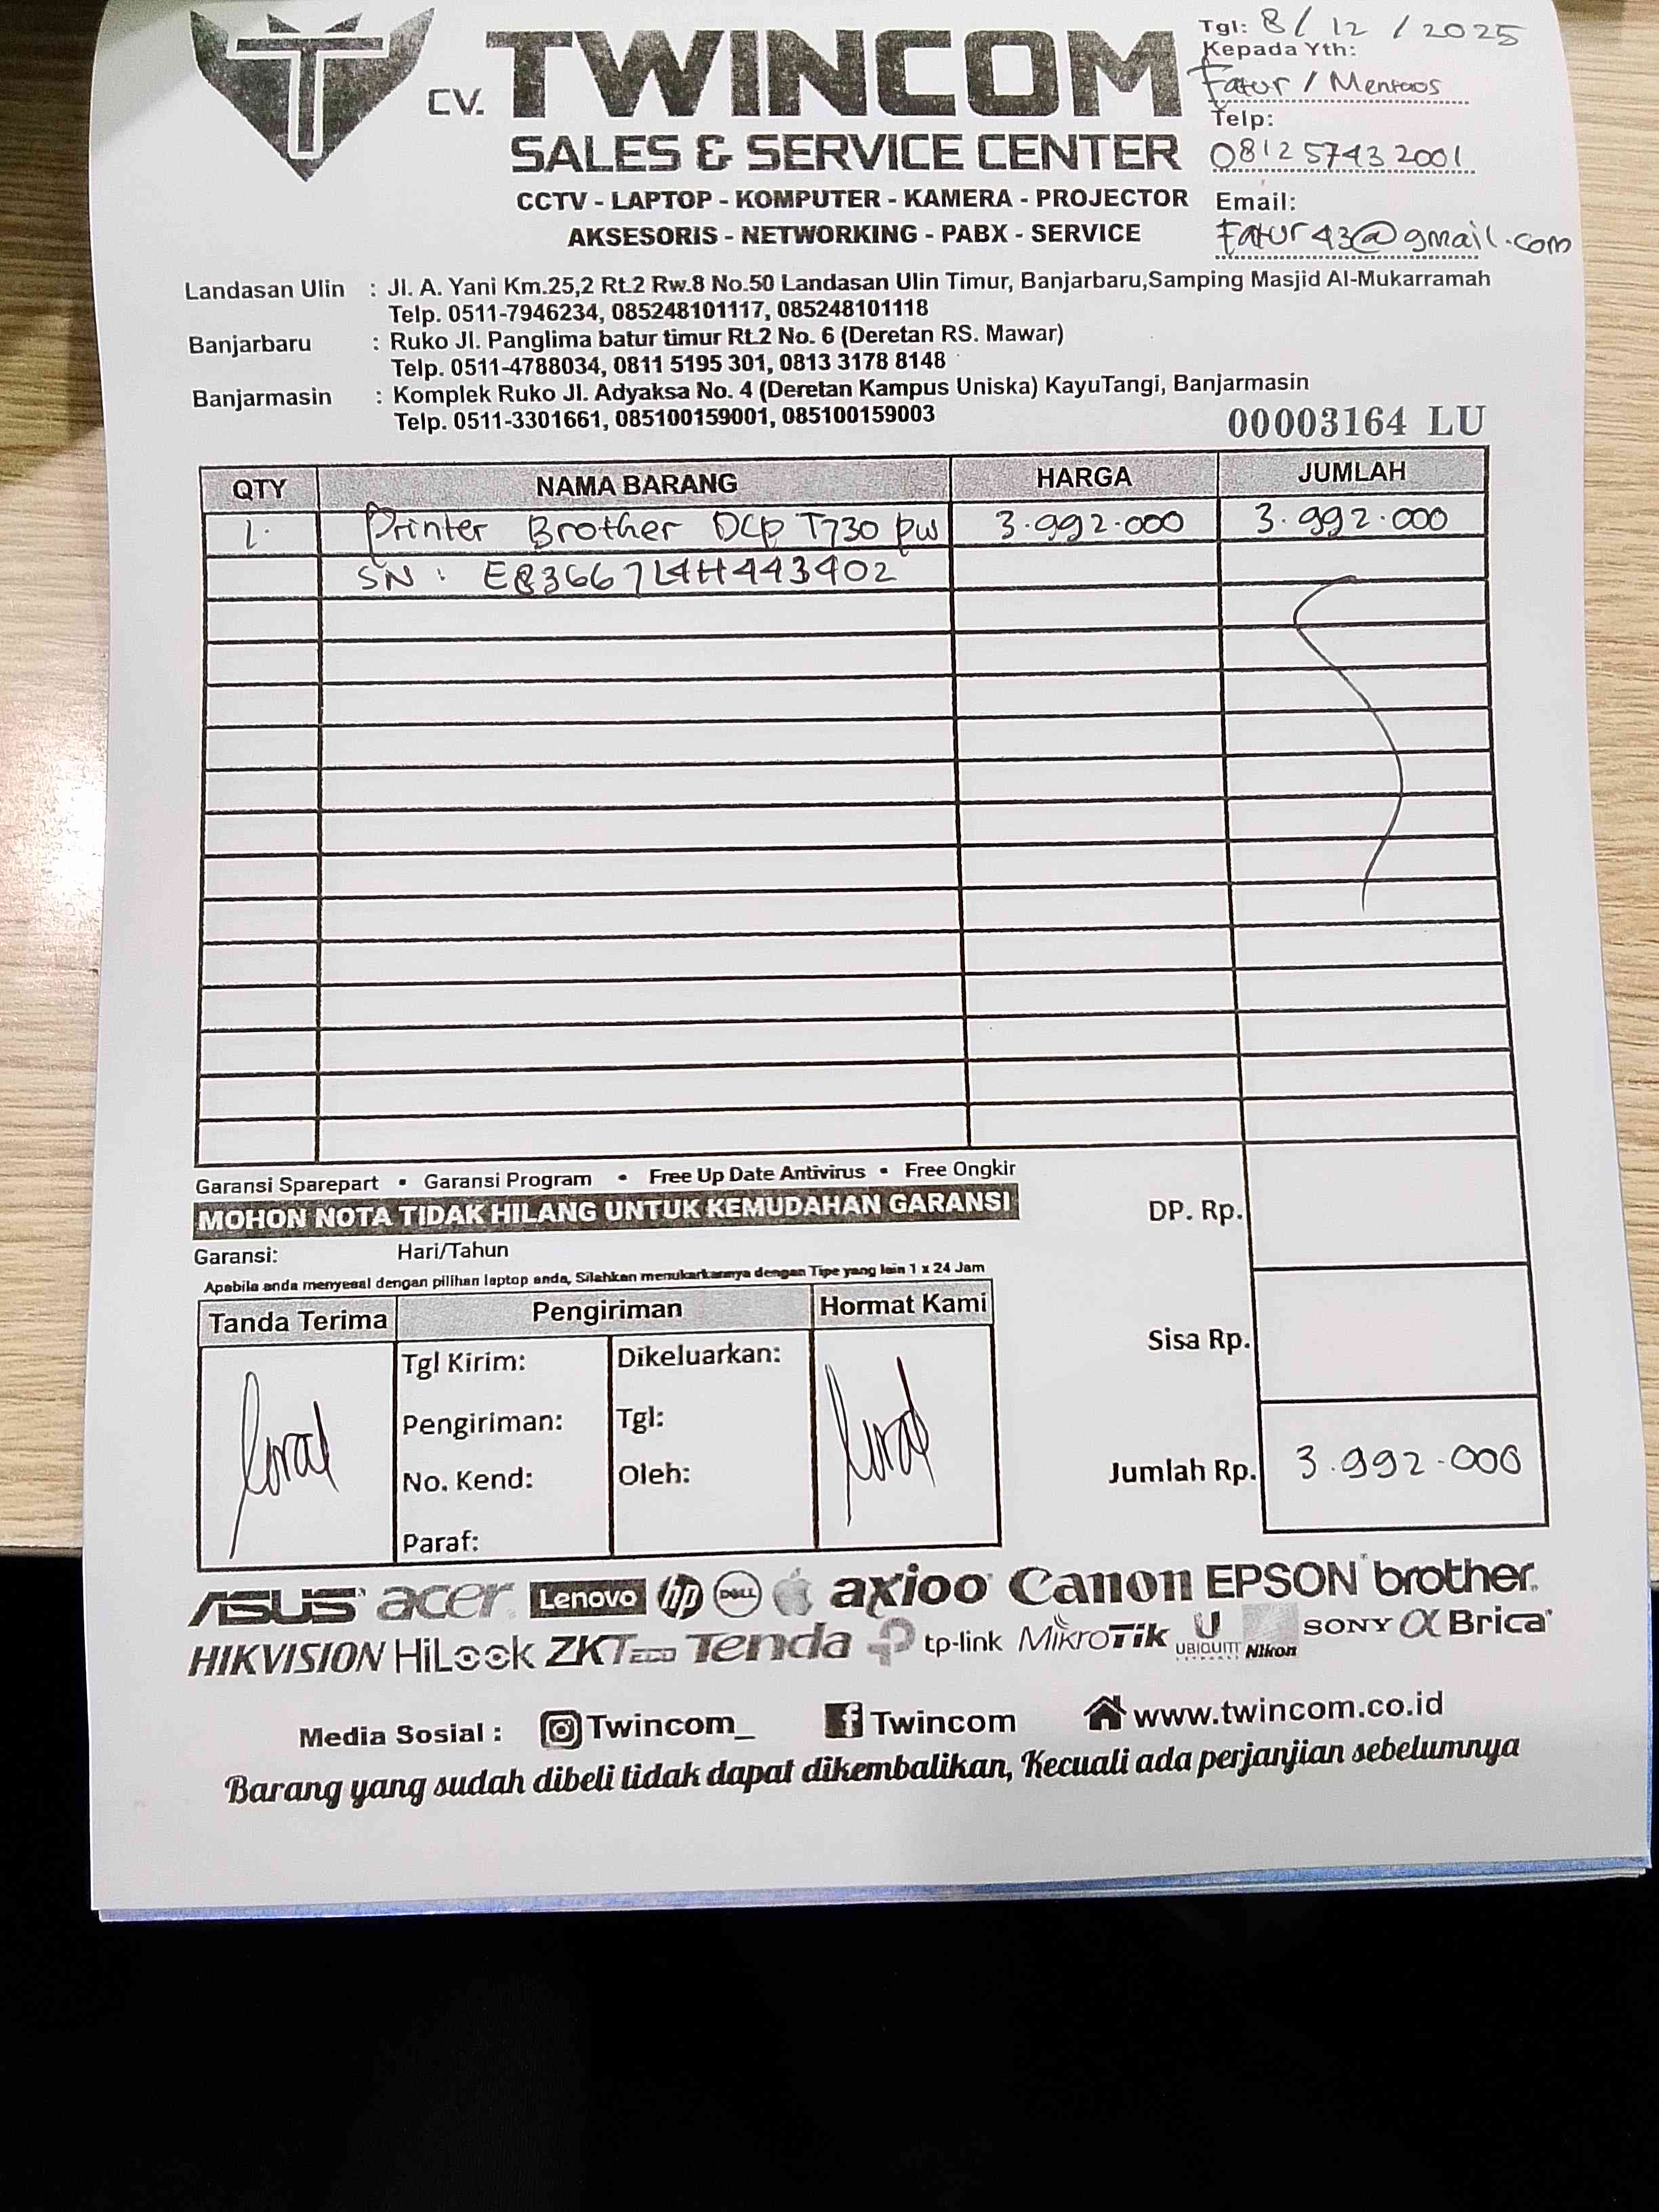 CV. TWINCOM
SALES & SERVICE CENTER
CCTV - LAPTOP - KOMPUTER - KAMERA - PROJECTOR
AKSESORIS - NETWORKING - PABX - SERVICE
Tgl: 8 / 12 / 2025
Kepada Yth:
Fatur / Mentaos
Telp:
081257432001
Email:
Fatur43@gmail.com
Landasan Ulin : Jl. A. Yani Km.25,2 Rt.2 Rw.8 No.50 Landasan Ulin Timur, Banjarbaru,Samping Masjid Al-Mukarramah
Telp. 0511-7946234, 085248101117, 085248101118
Banjarbaru : Ruko Jl. Panglima batur timur Rt.2 No. 6 (Deretan RS. Mawar)
Telp. 0511-4788034, 0811 5195 301, 0813 3178 8148
Banjarmasin : Komplek Ruko Jl. Adyaksa No. 4 (Deretan Kampus Uniska) KayuTangi, Banjarmasin
Telp. 0511-3301661, 085100159001, 085100159003
00003164 LU
QTY NAMA BARANG HARGA JUMLAH
1. Printer Brother DCP T730 PW 3.992.000 3.992.000
SN : E83667L4H443402
Garansi Sparepart • Garansi Program • Free Up Date Antivirus • Free Ongkir
MOHON NOTA TIDAK HILANG UNTUK KEMUDAHAN GARANSI
Garansi: Hari/Tahun
Apabila anda menyesal dengan pilihan laptop anda, Silahkan menukarkannya dengan Tipe yang lain 1 x 24 Jam
DP. Rp.
Sisa Rp.
Jumlah Rp. 3.992.000
Tanda Terima Pengiriman Hormat Kami
Tgl Kirim: Dikeluarkan:
Pengiriman: Tgl:
No. Kend: Oleh:
Paraf:
ASUS acer Lenovo hp DELL axioo Canon EPSON brother
HIKVISION HiLook ZKTECO Tenda tp-link MikroTik UBIQUITI NETWORKS Nikon SONY α Brica
Media Sosial : Twincom_ Twincom www.twincom.co.id
Barang yang sudah dibeli tidak dapat dikembalikan, Kecuali ada perjanjian sebelumnya